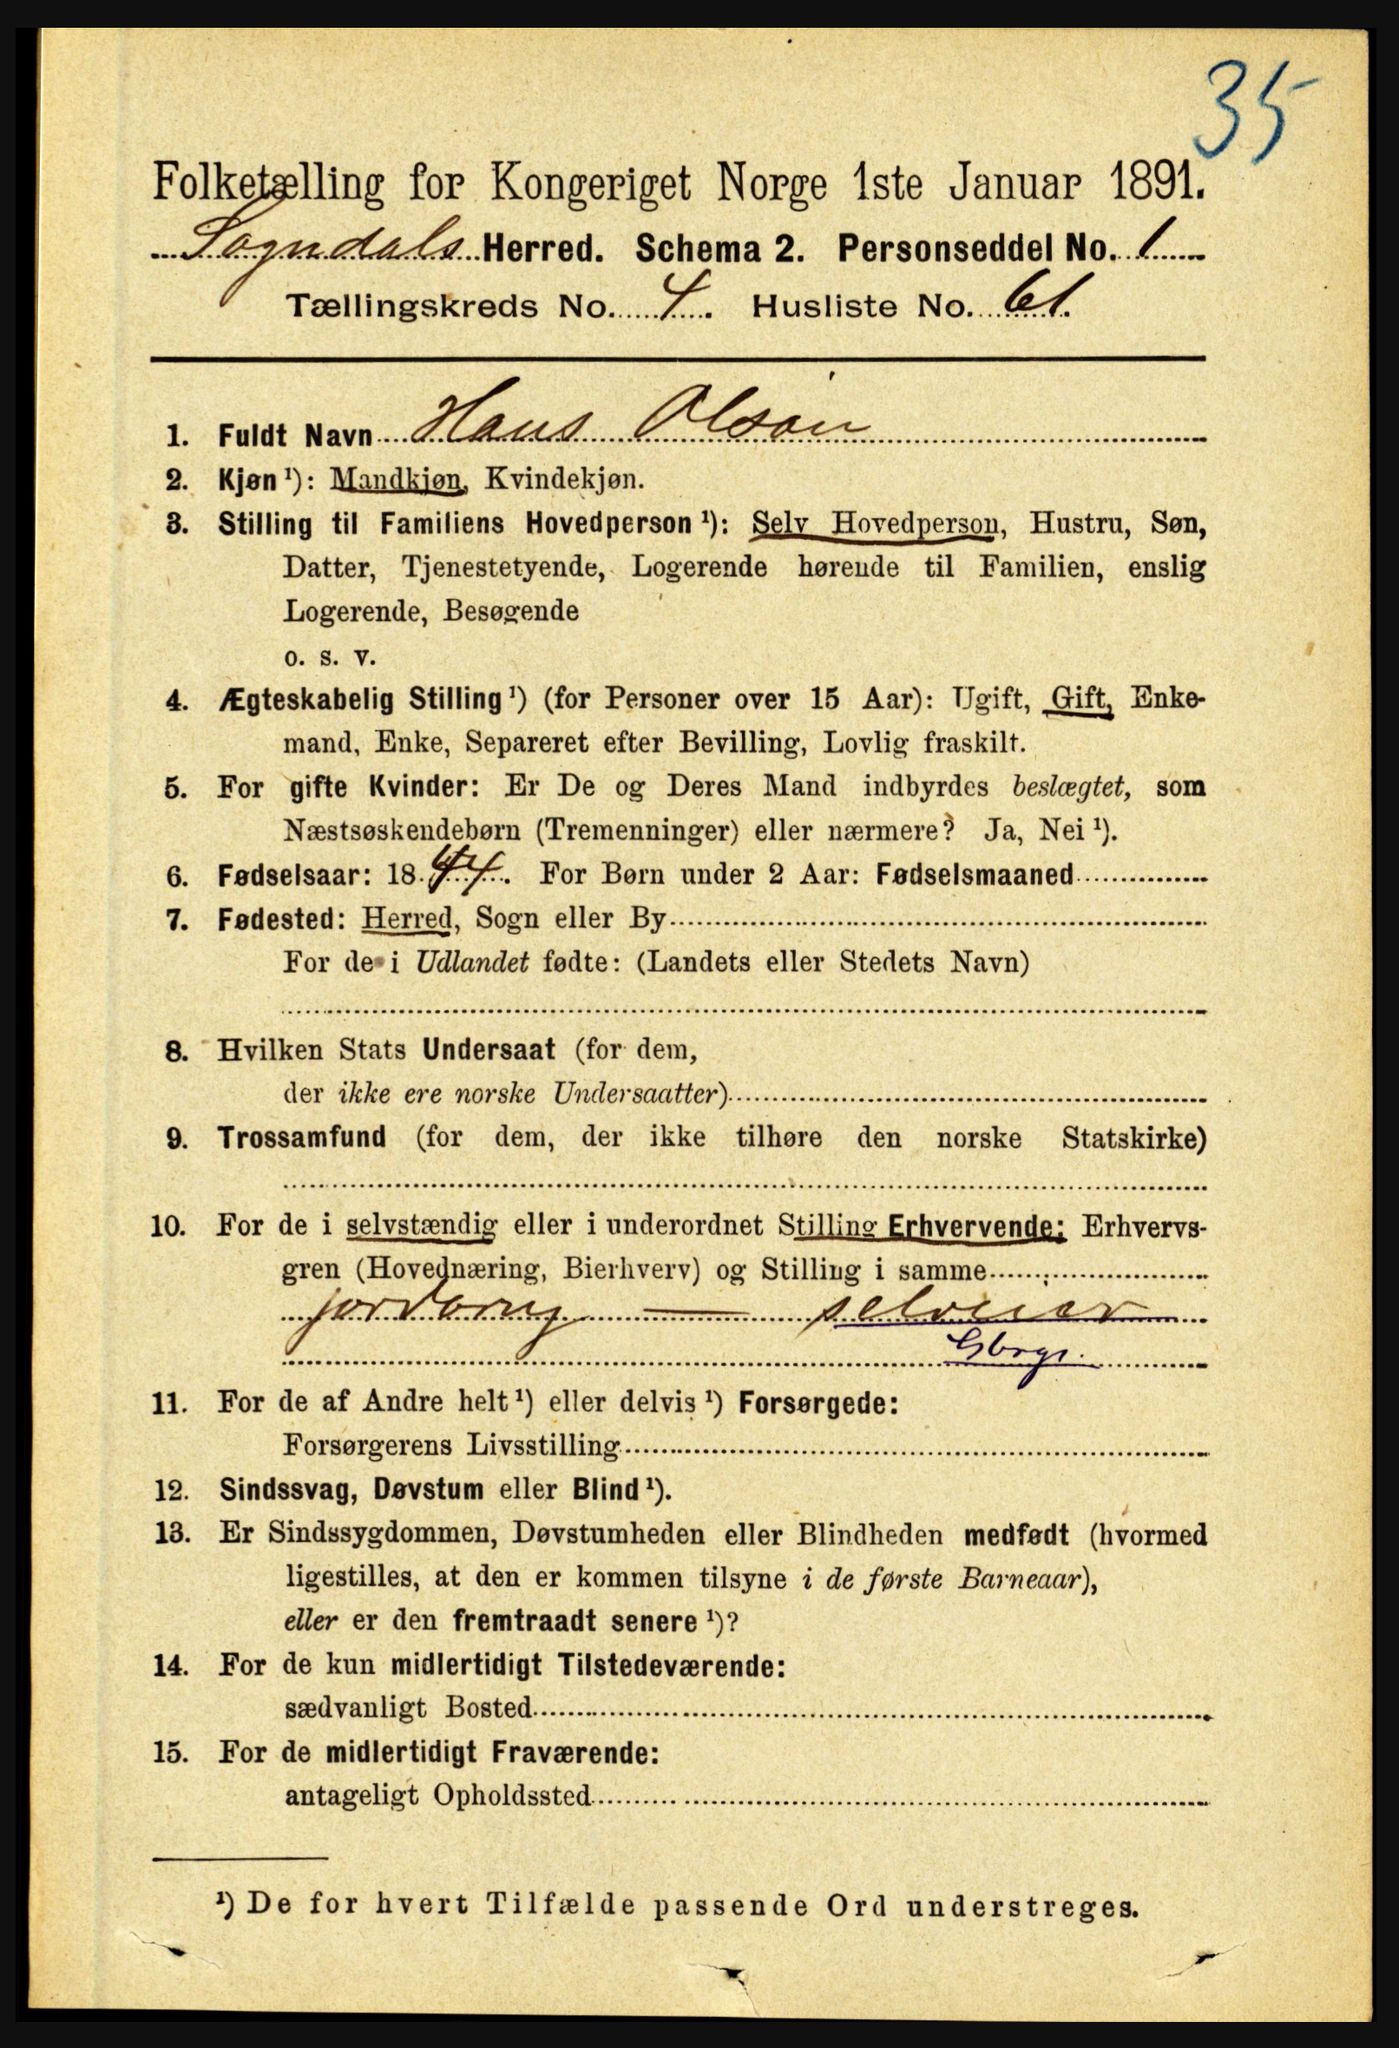 35
Folketælling for Kongeriget Norge 1ste Januar 1891.
Sogndals Herred. Schema 2. Personseddel No. 1
Tællingskreds No. 4. Husliste No. 61.
1. Fuldt Navn Hans Olson
2. Kjøn ¹): Mandkjøn, Kvindekjøn.
3. Stilling til Familiens Hovedperson ¹): Selv Hovedperson, Hustru, Søn,
Datter, Tjenestetyende, Logerende hørende til Familien, enslig
Logerende, Besøgende
o. s. v.
4. Ægteskabelig Stilling ¹) (for Personer over 15 Aar): Ugift, Gift, Enke-
mand, Enke, Separeret efter Bevilling, Lovlig fraskilt.
5. For gifte Kvinder: Er De og Deres Mand indbyrdes beslægtet, som
Næstsøskendebørn (Tremenninger) eller nærmere? Ja, Nei ¹).
6. Fødselsaar: 1844. For Børn under 2 Aar: Fødselsmaaned
7. Fødested: Herred, Sogn eller By
For de i Udlandet fødte: (Landets eller Stedets Navn)
8. Hvilken Stats Undersaat (for dem,
der ikke ere norske Undersaatter)
9. Trossamfund (for dem, der ikke tilhøre den norske Statskirke)
10. For de i selvstændig eller i underordnet Stilling Erhvervende: Erhvervs-
gren (Hovednæring, Bierhverv) og Stilling i samme
jordbrug — selveier
Gbrgr.
11. For de af Andre helt ¹) eller delvis ¹) Forsørgede:
Forsørgerens Livsstilling
12. Sindssvag, Døvstum eller Blind ¹).
13. Er Sindssygdommen, Døvstumheden eller Blindheden medfødt (hvormed
ligestilles, at den er kommen tilsyne i de første Barneaar),
eller er den fremtraadt senere ¹)?
14. For de kun midlertidigt Tilstedeværende:
sædvanligt Bosted
15. For de midlertidigt Fraværende:
antageligt Opholdssted
¹) De for hvert Tilfælde passende Ord understreges.